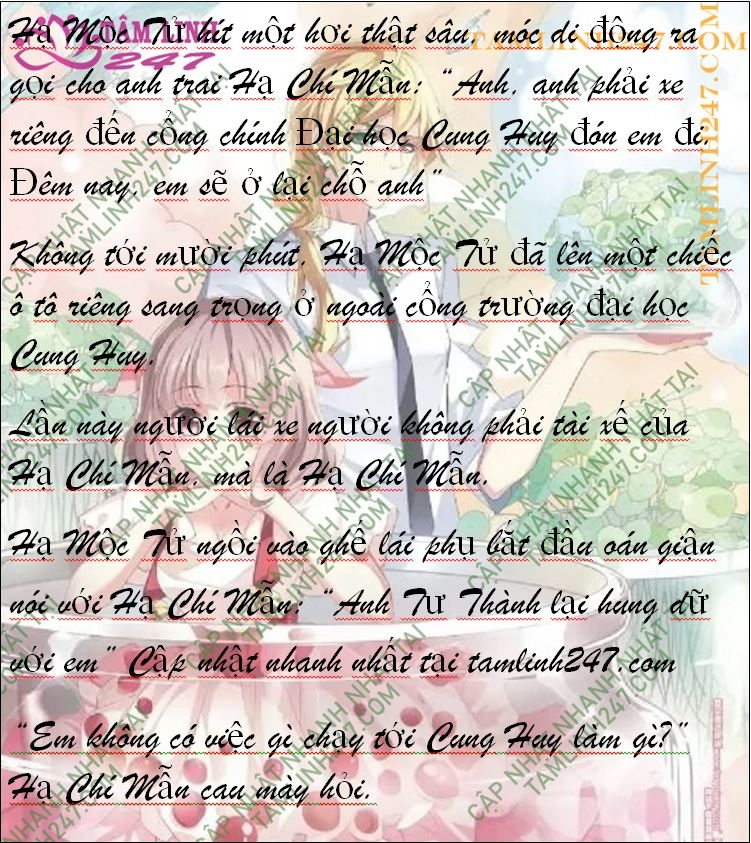 TÂM LINH
247
TAMLINH247.COM
TAMLINH247.COM
Hạ Mộc Tử hít một hơi thật sâu, móc di động ra
gọi cho anh trai Hạ Chí Mẫn: “Anh, anh phải xe
riêng đến cổng chính Đại học Cung Huy đón em đi.
Đêm nay, em sẽ ở lại chỗ anh”
Không tới mười phút, Hạ Mộc Tử đã lên một chiếc
ô tô riêng sang trọng ở ngoài cổng trường đại học
Cung Huy.
Lần này người lái xe người không phải tài xế của
Hạ Chí Mẫn, mà là Hạ Chí Mẫn.
Hạ Mộc Tử ngồi vào ghế lái phụ bắt đầu oán giận
nói với Hạ Chí Mẫn: “Anh Tư Thành lại hung dữ
với em” Cập nhật nhanh nhất tại tamlinh247.com
“Em không có việc gì chạy tới Cung Huy làm gì?”
Hạ Chí Mẫn cau mày hỏi.
CẬP NHẬT NHANH NHẤT TẠI
TAMLINH247.COM